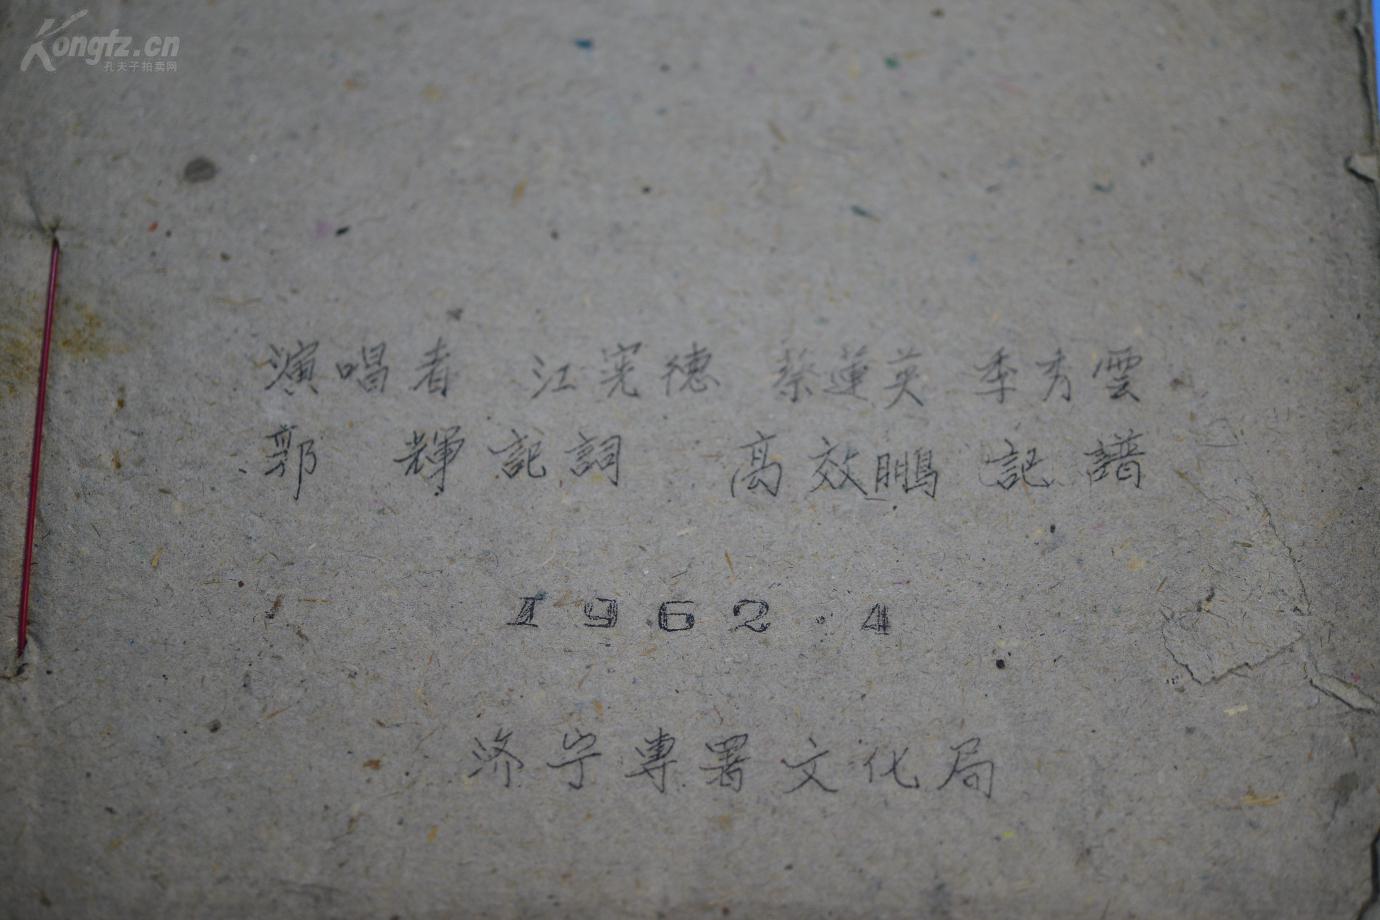 Kongfz.cn
孔夫子拍卖网
演唱者 江宪德 蔡蓮英 季秀雲
郭 輝記詞 高效鵬 記譜
1962.4
济宁專署文化局